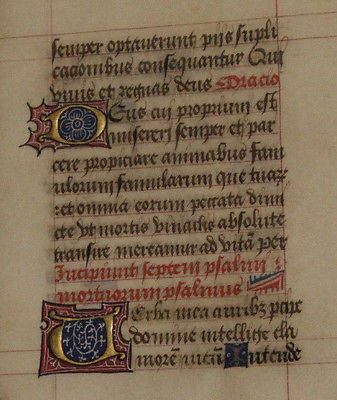 semper optaverunt piis supli
cacionibus consequantur Qui
vivis et regnas deus Oracio
Deus cui proprium est
misereri semper et par
cere propiciare animabus fam
ulorum famularum que tuar
et omnia eorum peccata dimi
cte ut mortis vinculis absolute
transire mereamur ad vitā per
Incipiunt septem psalmi
mortuorum psalmus
Verba mea auribꝫ percipe
domine intellige cla
morē meū Intende